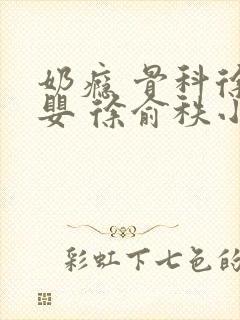 奶瘾 骨科徐
婴 徐俞秩小
彩虹下七色的